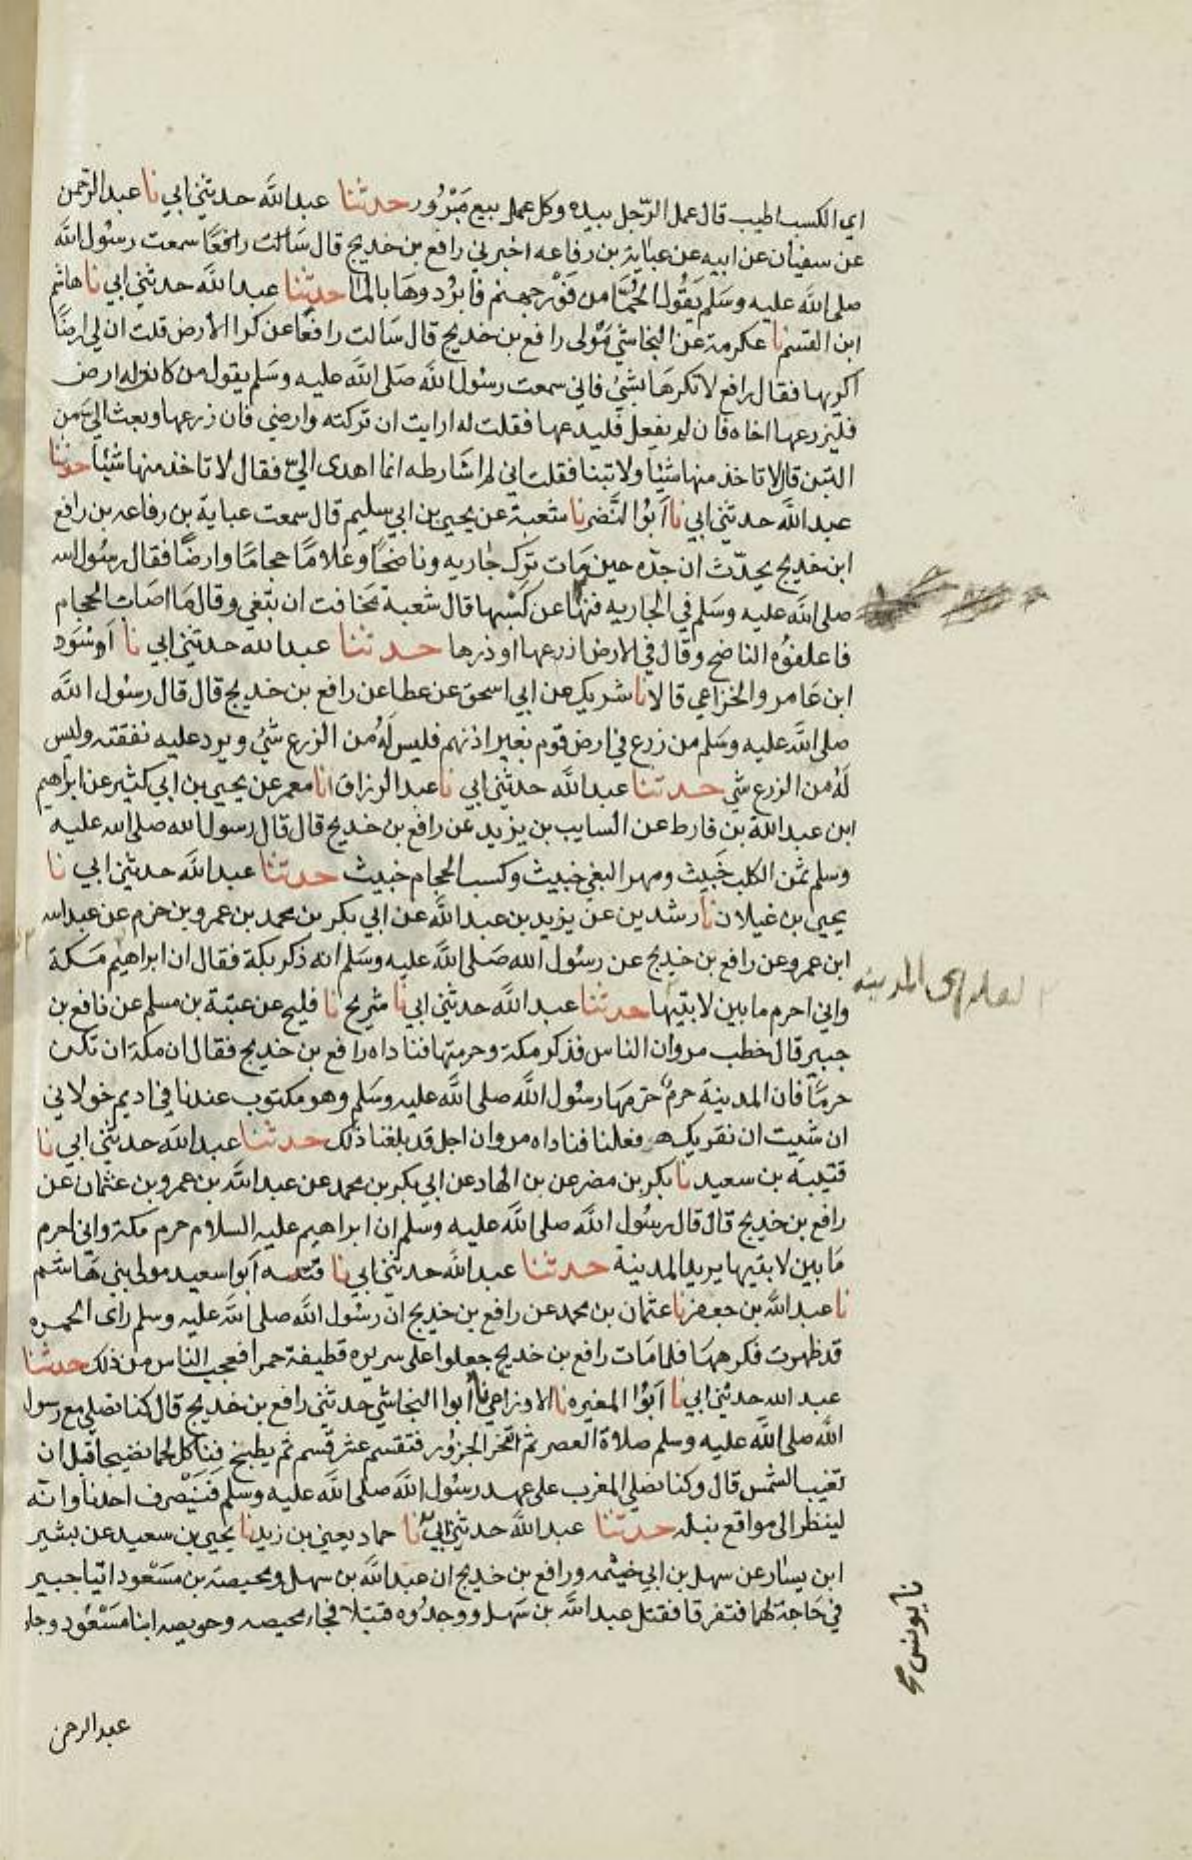 اي الكسب اطيب قال عمل الرّجل بيده وكل عمل بيع مَبْرُور حدثنا عبدالله حدثني ابي نا عبدالرّحمن
عن سفيان عن ابيه عن عباية بن رفاعه اخبرني رافع بن خديج قال سَالت رافعًا سمعت رسُول الله
صلى الله عليه وسَلم يَقُول الحُمّا من فَوْر جهنم فابرُدوهَا بالمآا حدثنا عبدالله حدثني ابي نا هاشم
ابن القسم نا عكرمة عن النجاشي مَوْلى رافع بن خديج قال سَالت رافعًا عن كرا الارض قلت ان لي ارضًا
اكريها فقال رافع لا تكرهَا بشيْ فاني سمعت رسُول الله صَلى الله عليه وسَلم يقول من كانت له ارض
فليزرعها اخاه فان لم يفعل فليدعها فقلت له ارايت ان تركته وارضي فان زرعها وبعث الي من
التبن قال لا تاخذ منها شيْا ولا تبنا فقلت اني لم اشَارطه انما اهدى اليّ فقال لا تاخذ منها شيْا حدثنا
عبدالله حدثني ابي نا ابُوا النَّضر نا شعبة عن يحيي بن ابي سليم قال سمعت عباية بن رفاعه بن رافع
ابن خديج يحدّث ان جدّه حين مَات ترك جاريه وناضحًا وغلامًا حجامًا وارضًا فقال رسُول الله
صلى الله عليه وسَلم في الجاريه فنهَا عن كسْبها قال شعبة مخافت ان تبغي وقال مَا اصَات الحجام
فاعلفوُه الناضح وقال في الارض ازرعها او ذرها حدثنا عبدالله حدثني ابي نا اسْوَد
ابن عَامر والخزاعي قالا نا شريك عن ابي اسحق عن عطا عن رافع بن خديج قال قال رسُول الله
صلى الله عليه وسَلم من زرع في ارض قوم بغير اذنهم فليس لهُ من الزرع شيْ ويرد عليه نفقته وليس
لهُ من الزرع شي حدثنا عبدالله حدثني ابي نا عبدالرزاق انا معمر عن يحيي بن ابي كثير عن ابراهيم
ابن عبدالله بن قارظ عن السايب بن يزيد عن رافع بن خديج قال قال رسول الله صلى الله عليه
وسلم ثمن الكلب خَبيث ومهر البغي خبيث وكسب الحجام خبيث حدثنا عبدالله حدثني ابي نا
يحيي بن غيلان نا رشدين عن يزيد بن عبدالله عن ابي بكر بن محمد بن عمرو بن حزم عن عبدالله
ابن عمرو عن رافع بن خديج عن رسُول الله صَلى الله عليه وسَلم انه ذكر بكة فقال ان ابراهيم مكة
واني احرم ما بين لابتيها حدثنا عبدالله حدثني ابي نا شريح نا فليح عن عتبة بن مسلم عن نافع بن
جبير قال خطب مروان الناس فذكر مكة وحرمتها فناداه رافع بن خديج فقال ان مكة ان تكن
حرمًا فان المدينة حرمٌ حرّمهَا رسُول الله صلى الله عليه وسَلم وهو مكتوب عندنا في اديم خولاني
ان شيت ان نقريكه فعلنا فناداه مروان اجل قد بلغنا ذلك حدثنا عبدالله حدثني ابي نا
قتيبة بن سعيد نا بكر بن مضر عن بن الهاد عن ابي بكر بن محمد عن عبدالله بن عمرو بن عثمان عن
رافع بن خديج قال قال رسُول الله صلى الله عليه وسلم ان ابراهيم عليه السلام حرم مكة واني احرم
مَا بين لابتيها يريد المدينة حدثنا عبدالله حدثني ابي نا ابوا سعيد مولى بني هَاشم
نا عبدالله بن جعفر نا عثمان بن محمد عن رافع بن خديج ان رسُول الله صلى الله عليه وسلم راى الحمره
قد ظهرت فكرههَا فلما مَات رافع بن خديج جعلوا على سريره قطيفة حمرا فعجب الناس من ذلك حدثنا
عبد الله حدثني ابي نا ابُوا المغيره نا الاوزاعي نا ابوا النجاشي حدثني رافع بن خديج قال كنا نصلي مع رسول
الله صلى الله عليه وسلم صلاة العصر ثم تنحر الجزُور فتقسم عشر قسم ثم يطبخ فناكل لحما نضيجا قبل ان
تغيب الشمس قال وكنا نصلي المغرب على عهد رسُول الله صلى الله عليه وسلم فَيَنْصرف احدنا وانه
لينظر الى مواقع نبله حدثنا عبدالله حدثني ابي نا حماد يعني بن زيد نا يحيي بن سعيد عن بشير
ابن يسَار عن سهل بن ابي خيثمه ورافع بن خديج ان عبدالله بن سهل ومحيصة بن مسَعْود اتيا خيبر
في حَاجة لهما فتفرقا فقتل عبدالله بن سَهل ووجدُوه قتيلا فجاء محيصه وحويصه ابنا مسَعْود وجاء
عبدالرحمن
المدينة
نا يونس